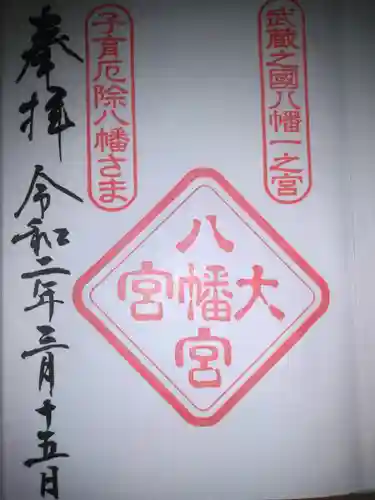 武蔵之國八幡一之宮
子育厄除八幡さま
大八幡宮宮
奉拝
令和二年三月十五日